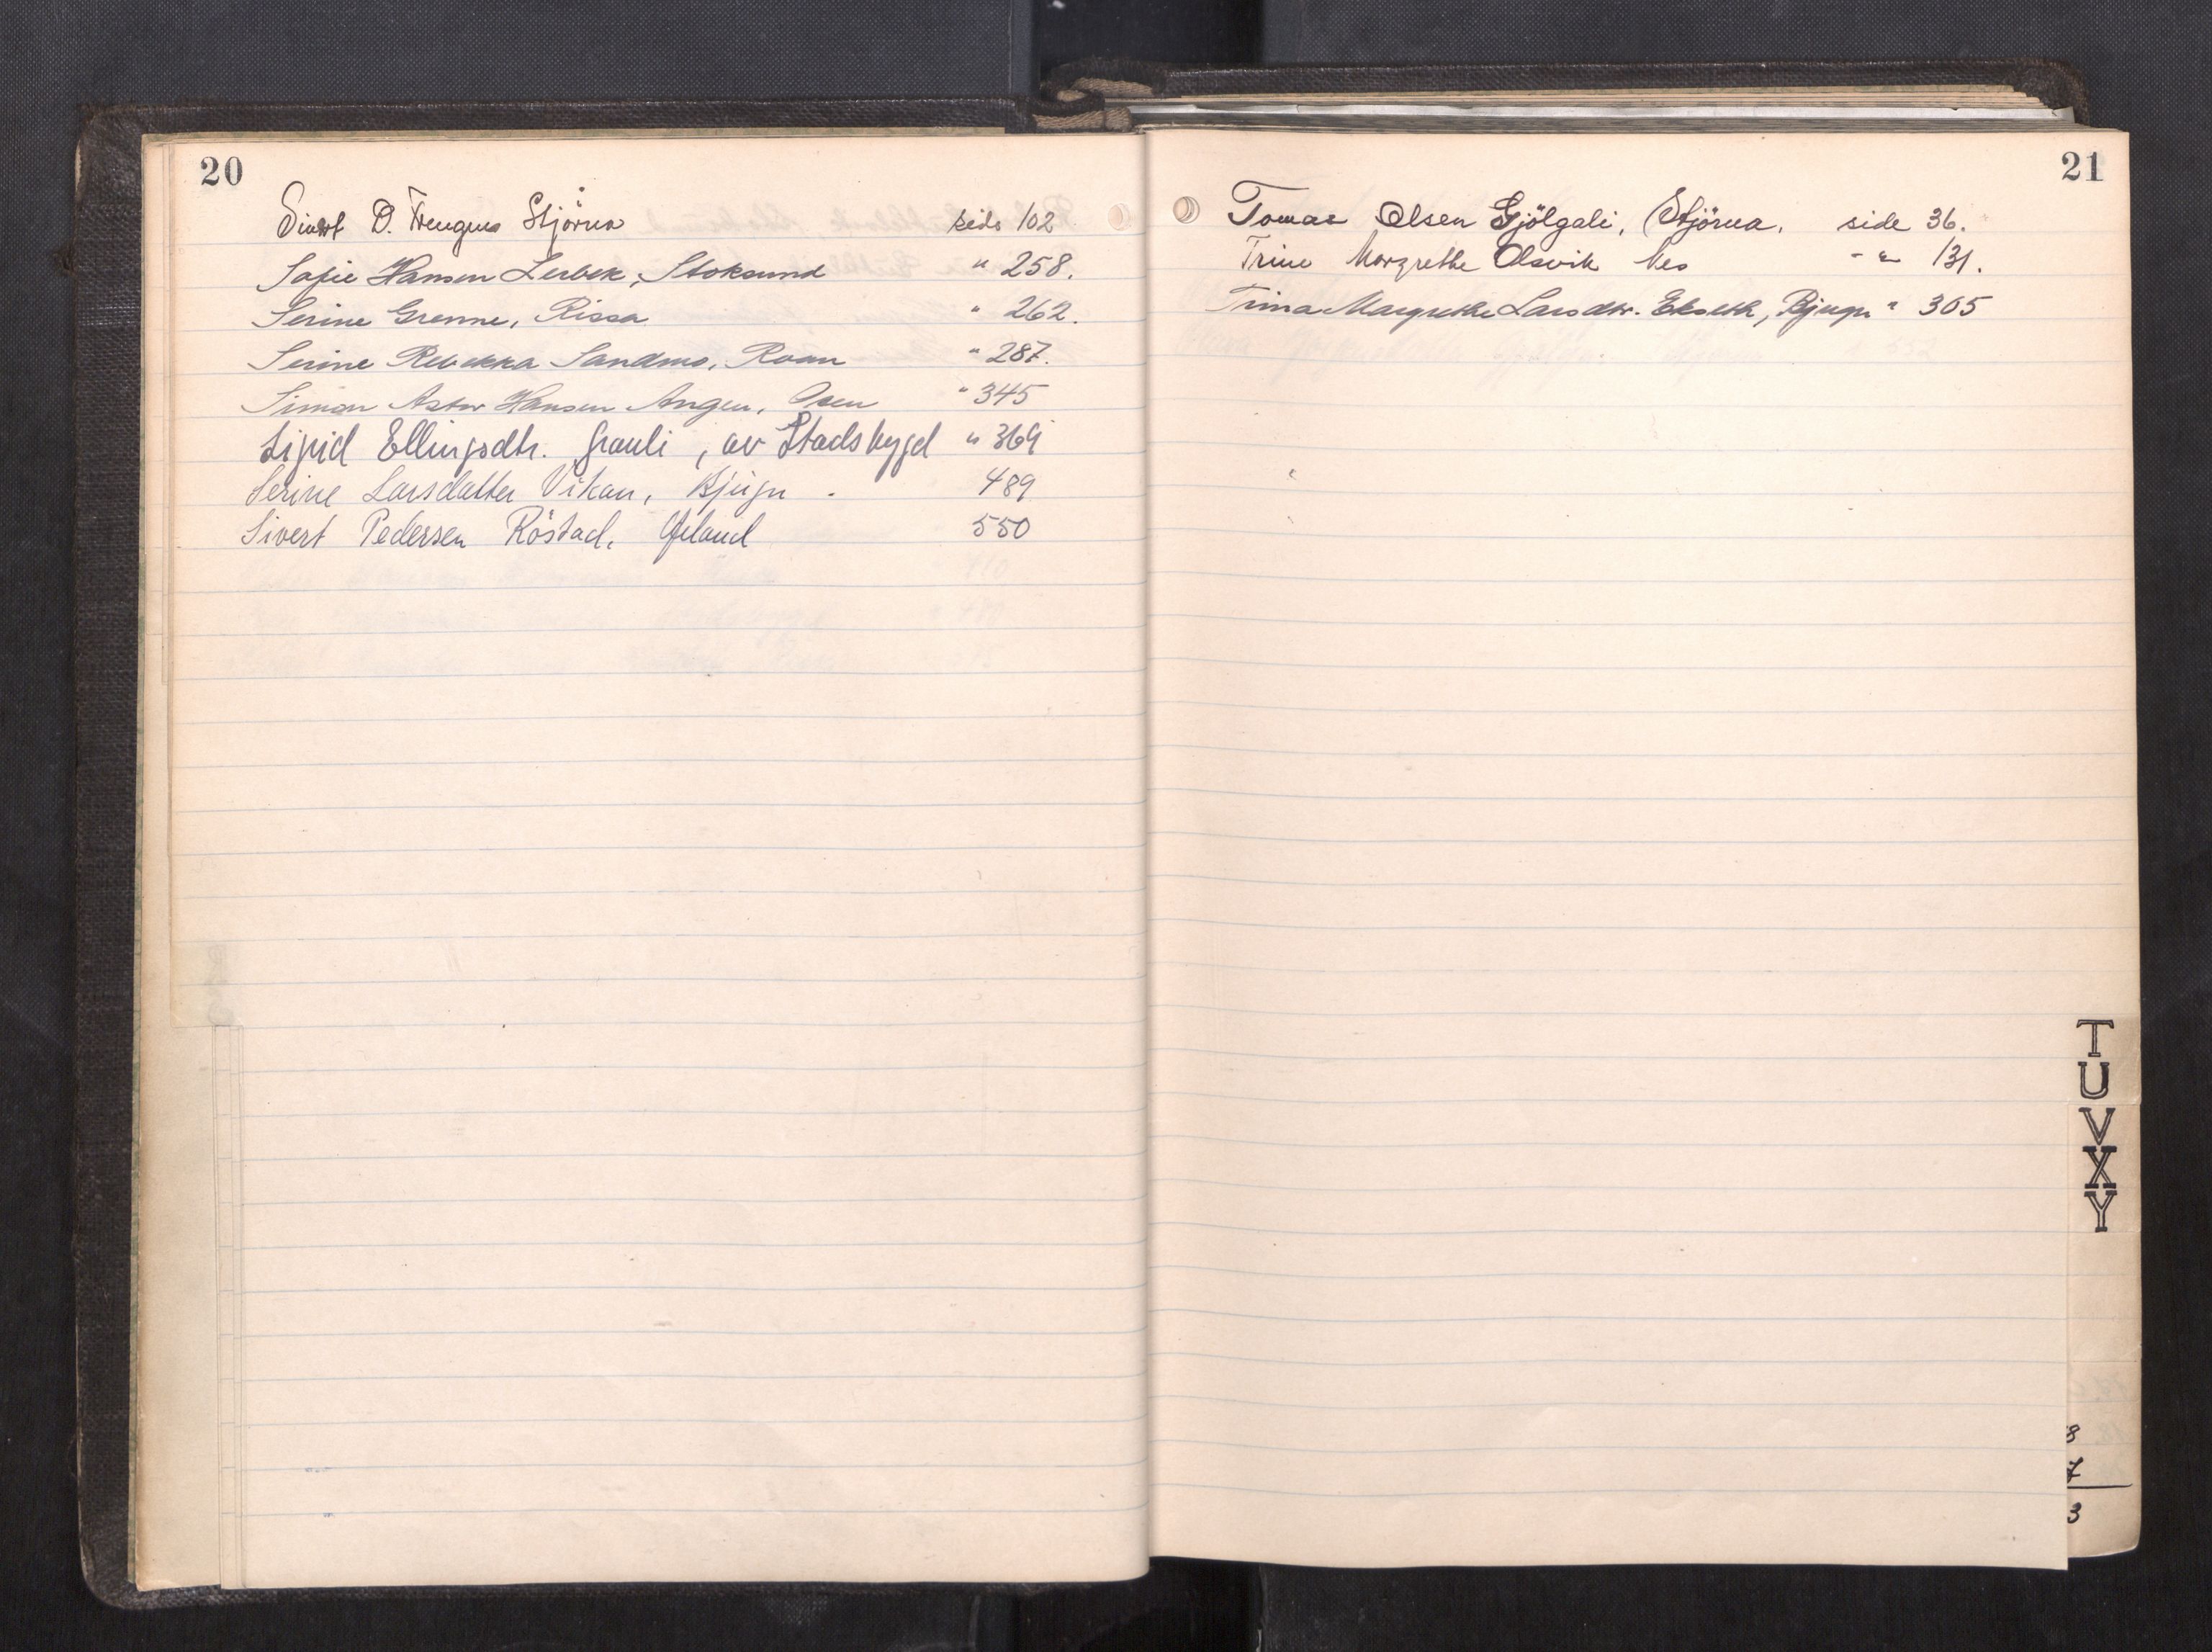 20
Sivert D. Frengen Stjörna side 102
Sofie Hansen Lerbek, Stoksund " 258.
Serine Grenne, Rissa " 262.
Serine Rebekka Sandmo, Roan " 287.
Simon Astor Hansen Angen, Osen " 345
Sigrid Ellingsdtr. Grauli, av Stadsbygd " 369
Serine Larsdatter Vikan, Bjugn. 489
Sivert Pedersen Röstad, Ørland 550
21
Tomas Olsen Gjölgali, Stjörna. side 36.
Trine Margrethe Olsvik Nes - " 131.
Trina Margrethe Larsdtr. Bjugn " 305
T
U
V
X
Y
8
7
3